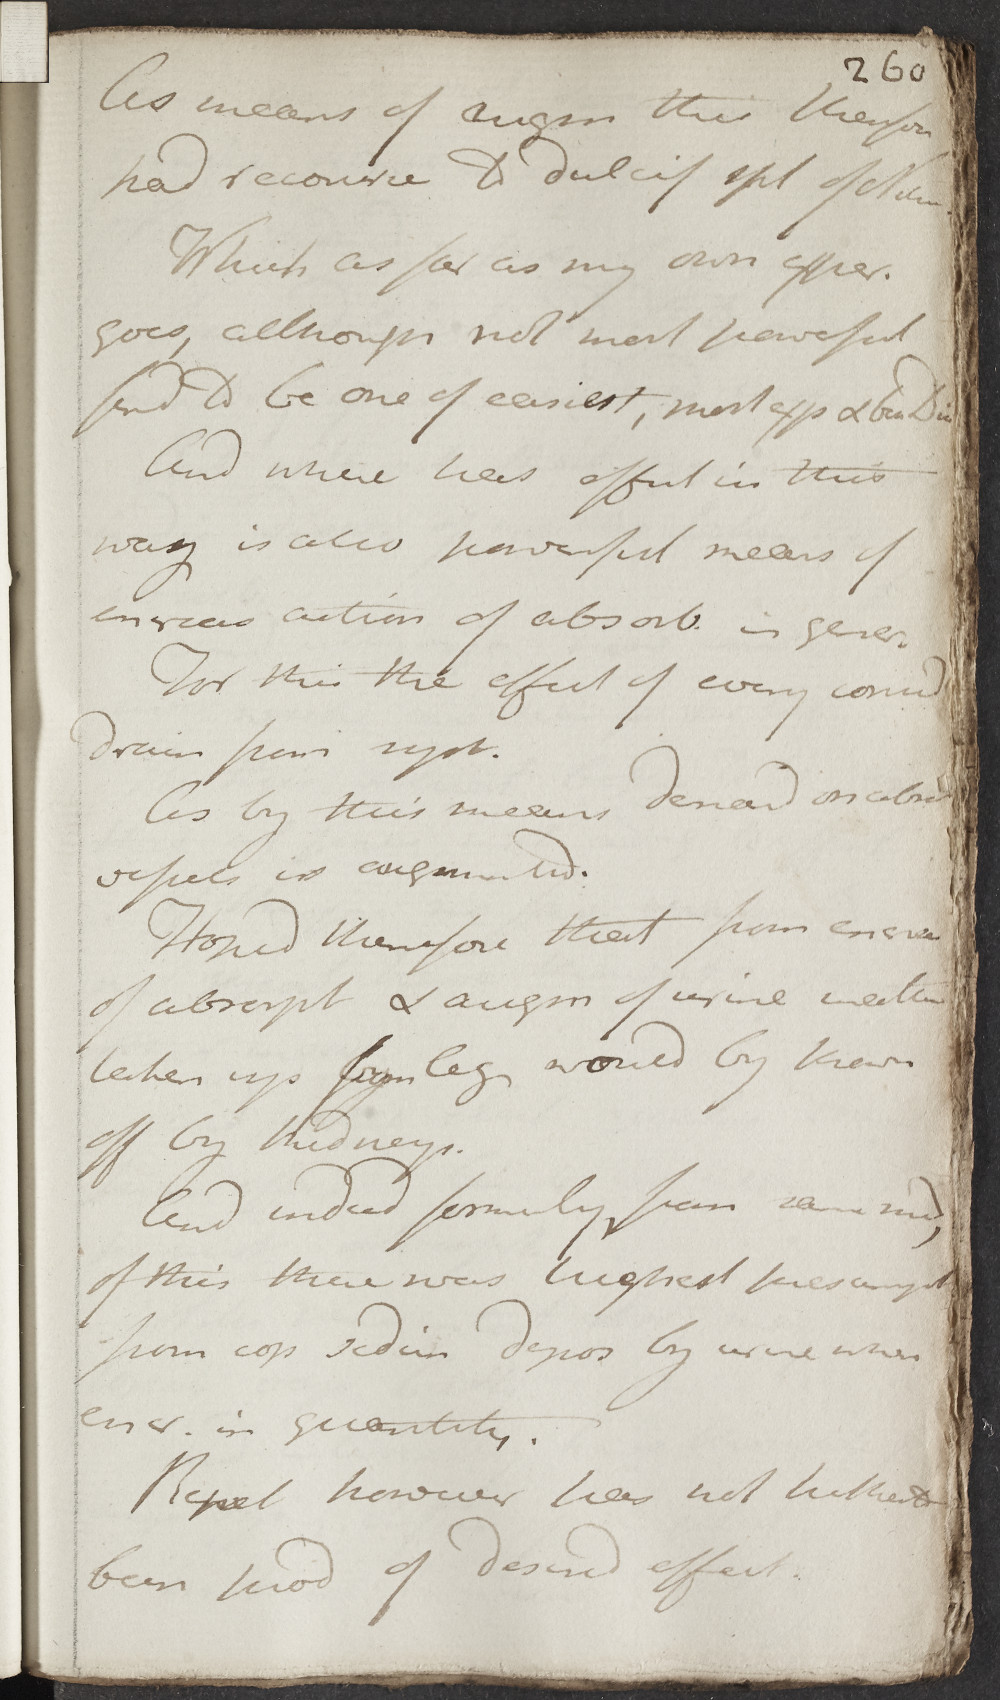 260
As means of augm this therefore
had recourse to dulcif spt of Nitre
Which as far as my own exper.
goes, although not most powerful
find to be one of easiest, most exp &
And where has effect in this
way is also powerful means of
increas action of absorb. in gener.
For this the effect of every consid
drain from syst.
As by this means demand on absorb
vessels is augmented.
Hoped therefore that from increa
of absorpt & augm of urine matter
taken up from leg would by thrown
off by kidneys.
And indeed formerly, from same med,
of this there was highest presumpt
from cop sedim depos by urine when
incr. in quantity.
Repet however has not hitherto
been prod of desired effect.